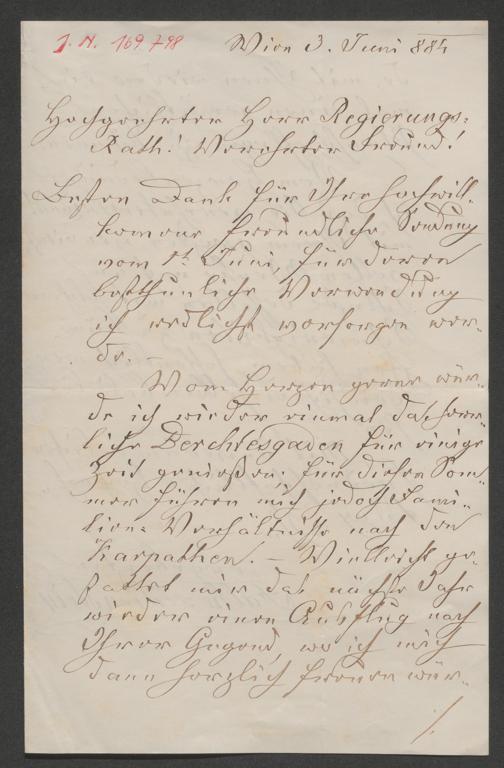 J. N. 169.798
Wien 3. Juni 884
Hochgeehrter Herr Regierungs=
Rath! Verehrter Freund!
Besten Dank für Ihre hochwill-
komene freundliche Sendung
vom 1t Juni, für deren
bestthunliche Verwendung
ich redlichst vorsorgen wer-
de. –
Vom Herzen gerne wür-
de ich wieder einmal das herr-
liche Berchtesgaden für einige
Zeit genießen; für diesen Som-
mer führen mich jedoch Fami-
lien= Verhältnisse nach den
Karpathen. – Vielleicht ge-
stattet mir das nächste Jahr
wieder einen Ausflug nach
Ihrer Gegend, wo ich mich
dann herzlich freuen wür-
/.